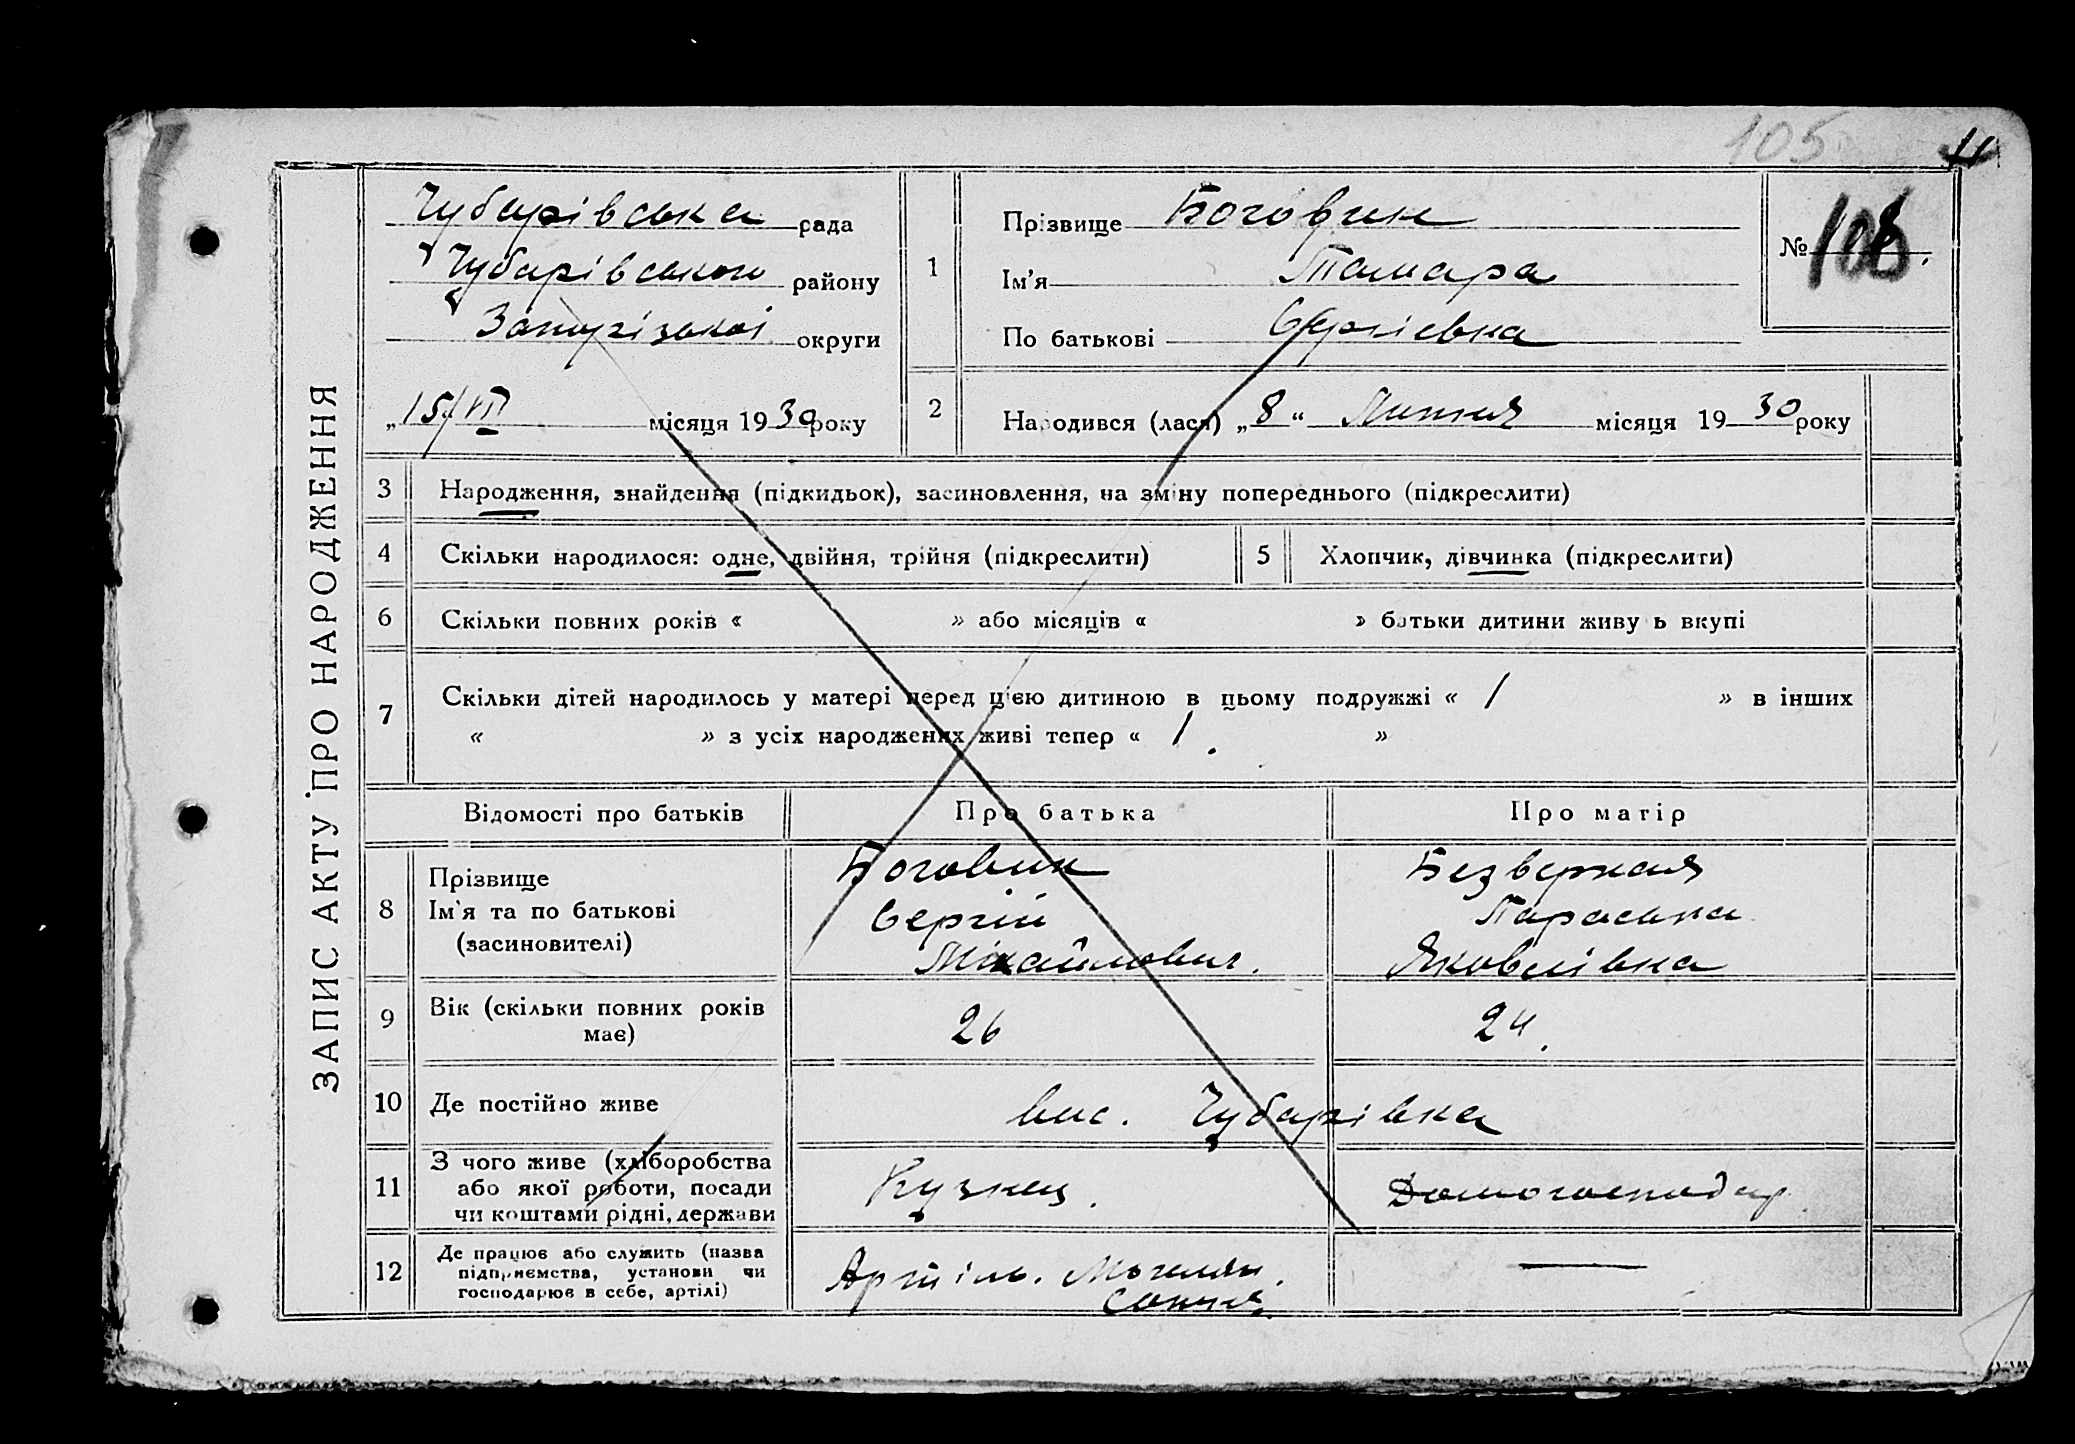 105
ЗАПИС АКТУ ПРО НАРОДЖЕННЯ
Чубарівська рада
Чубарівського району
Запорізької округи
„15/VII місяця 1930 року
1
Прізвище Боговик
Ім’я Тамара
По батькові Сергієвна
№ 108.
2
Народився (лася) „8“ Липня місяця 1930 року
3 Народження, знайдення (підкидьок), засиновлення, на зміну попереднього (підкреслити)
4 Скільки народилося: одне, двійня, трійня (підкреслити) 5 Хлопчик, дівчинка (підкреслити)
6 Скільки повних років « » або місяців « » батьки дитини живуть вкупі
7 Скільки дітей народилось у матері перед цією дитиною в цьому подружжі « 1 » в інших
« » з усіх народжених живі тепер « 1. »
Відомості про батьків Про батька Про матір
8 Прізвище
Ім’я та по батькові
(засиновителі)
Боговик
Сергій
Міхайлович.
Безверхная
Параска
Яковлівна
9 Вік (скільки повних років
має)
26 24.
10 Де постійно живе вис. Чубарівка
11 З чого живе (хліборобства
або якої роботи, посади
чи коштами рідні, держави
Кузнец. Домогосподар
12 Де працює або служить (назва
підприємства, установи чи
господарює в себе, артілі)
Артіль.